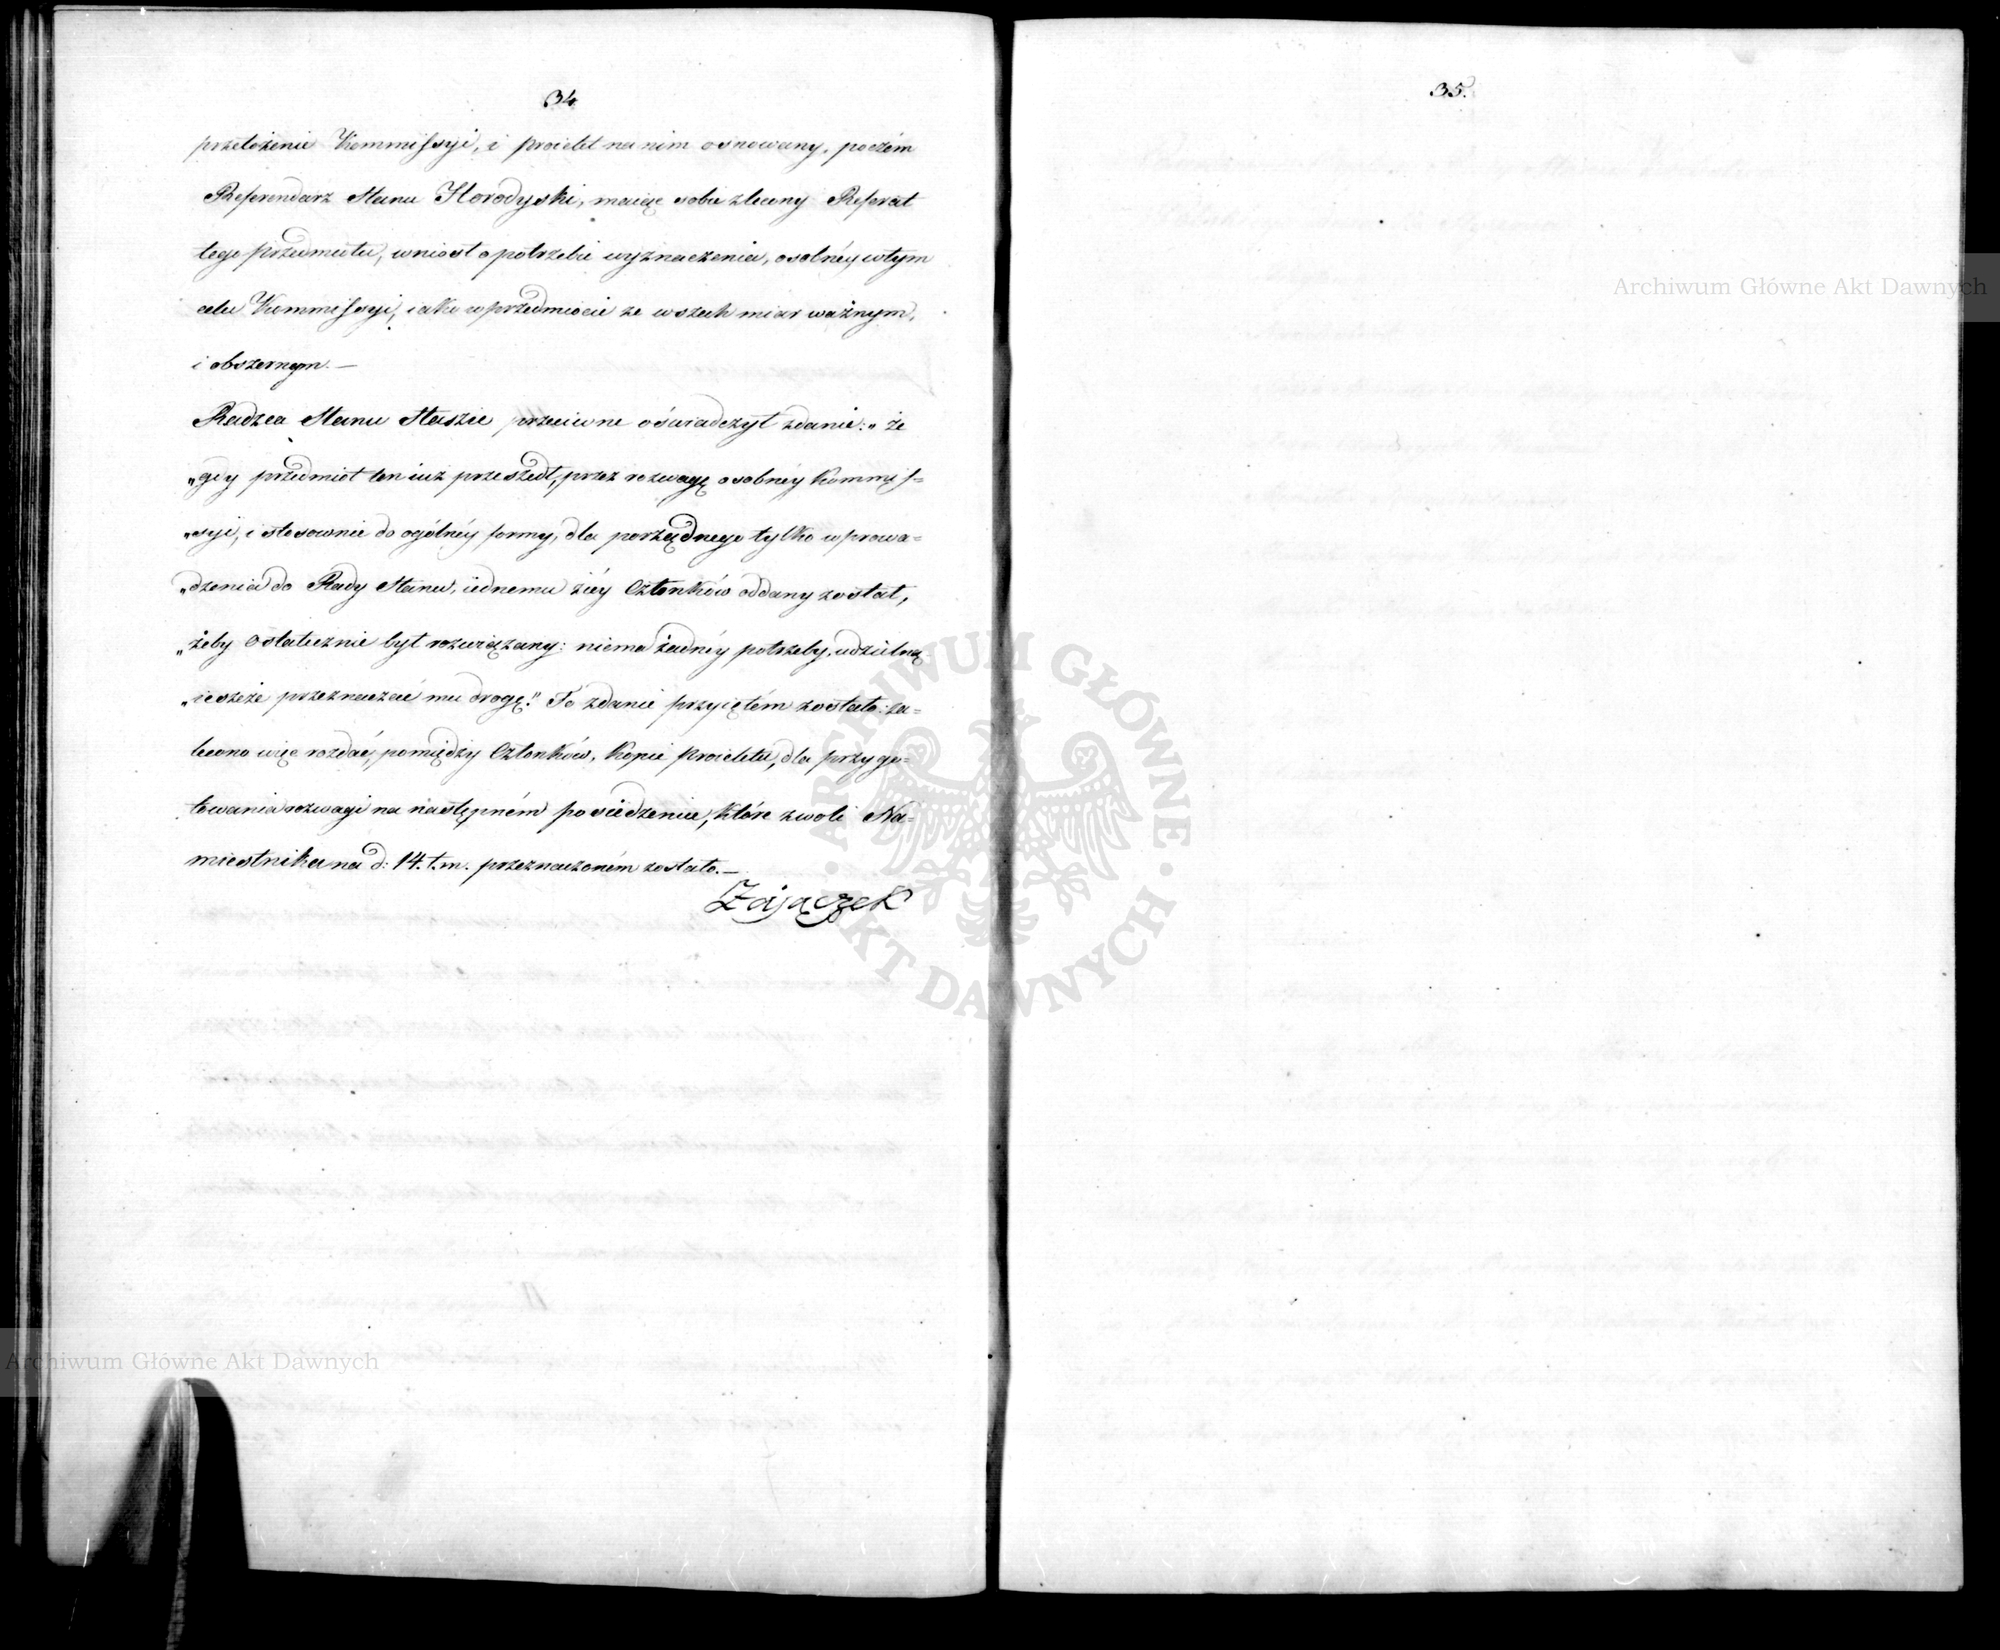 34
przełożenie Kommissyi, i proiekt na nim osnowany, poczém
Referendarz Stanu Horodyski, maiąc sobie zlecony Referat
tego przedmiotu, wniosł o potrzebie wyznaczenia, osobnéy w tym
celu Kommissyi, iako w przedmiocie ze wszech miar ważnym,
i obszernym. —
Radzca Stanu Staszic przeciwne oświadczył zdanie: „że
„gdy przedmiot ten iuż przeszedł, przez rozwagę osobnéy Kommis=
„syi, i stosownie do ogólnéy formy, dla porządnego tylko wprowa=
„dzenia do Rady Stanu, iednemu z iéy Członków oddany został,
„żeby ostatecznie był rozwiązany: niema żadnéy potrzeby, udzielną
„ieszcze przeznaczać mu drogę." To zdanie przyiętém zostało: za=
lecono więc rozdać, pomiędzy Członków, kopie proiektu, dla przygo=
towania rozwagi na następném posiedzeniu, które z woli Na=
miestnika na d: 14. t. m. przeznaczoném zostało. —
Zajączek
35.
Archiwum Główne Akt Dawnych
ARCHIWUM GŁÓWNE AKT DAWNYCH
Archiwum Główne Akt Dawnych